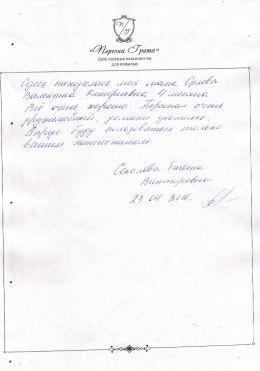 «Персона Грата»
Сеть частных пансионатов
для пожилых
Здесь находилась моя мама Орлова
Валентина 4 месяца
Всё очень хорошо. Персонал очень
дружелюбный, домашн
Впредь буду пользоваться только
вашим пансионатом
Соколова Татьяна
Викторовна
23 04 2016.